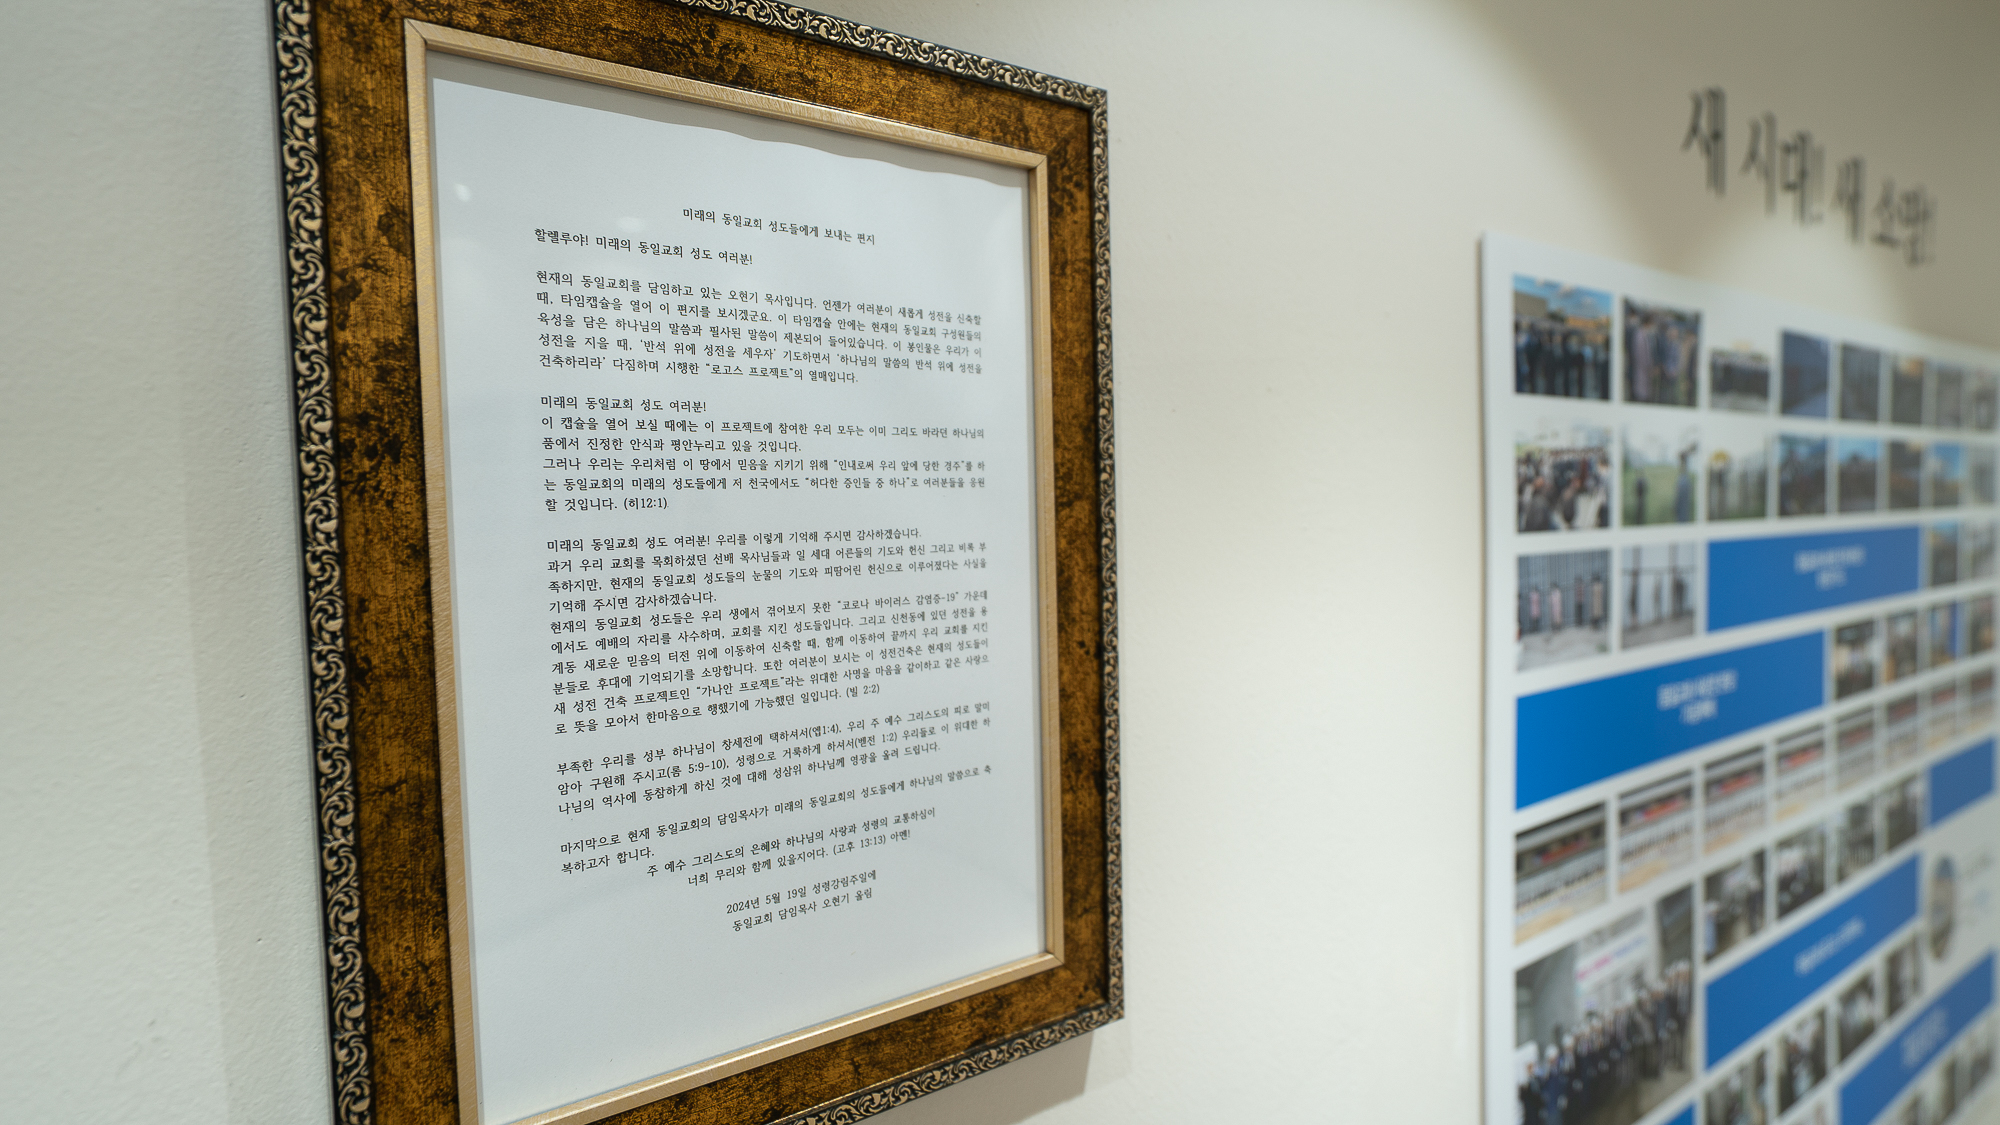 미래의 동일교회 성도들에게 보내는 편지
할렐루야! 미래의 동일교회 성도 여러분!
현재의 동일교회를 담임하고 있는 오현기 목사입니다. 언젠가 여러분이 새롭게 성전을 신축할
때, 타임캡슐을 열어 이 편지를 보시겠군요. 이 타임캡슐 안에는 현재의 동일교회 구성원들의
육성을 담은 하나님의 말씀과 필사된 말씀이 제본되어 들어있습니다. 이 봉인물은 우리가 이
성전을 지을 때, ‘반석 위에 성전을 세우자’ 기도하면서 ‘하나님의 말씀의 반석 위에 성전을
건축하리라’ 다짐하며 시행한 “로고스 프로젝트”의 열매입니다.
미래의 동일교회 성도 여러분!
이 캡슐을 열어 보실 때에는 이 프로젝트에 참여한 우리 모두는 이미 그리도 바라던 하나님의
품에서 진정한 안식과 평안누리고 있을 것입니다.
그러나 우리는 우리처럼 이 땅에서 믿음을 지키기 위해 “인내로써 우리 앞에 당한 경주”를 하
는 동일교회의 미래의 성도들에게 저 천국에서도 “허다한 증인들 중 하나”로 여러분들을 응원
할 것입니다. (히12:1)
미래의 동일교회 성도 여러분! 우리를 이렇게 기억해 주시면 감사하겠습니다.
과거 우리 교회를 목회하셨던 선배 목사님들과 일 세대 어른들의 기도와 헌신 그리고 비록 부
족하지만, 현재의 동일교회 성도들의 눈물의 기도와 피땀어린 헌신으로 이루어졌다는 사실을
기억해 주시면 감사하겠습니다.
현재의 동일교회 성도들은 우리 생에서 겪어보지 못한 “코로나 바이러스 감염증-19” 가운데
에서도 예배의 자리를 사수하며, 교회를 지킨 성도들입니다. 그리고 신천동에 있던 성전을 용
계동 새로운 믿음의 터전 위에 이동하여 신축할 때, 함께 이동하여 끝까지 우리 교회를 지킨
분들로 후대에 기억되기를 소망합니다. 또한 여러분이 보시는 이 성전건축은 현재의 성도들이
새 성전 건축 프로젝트인 “가나안 프로젝트”라는 위대한 사명을 마음을 같이하고 같은 사랑으
로 뜻을 모아서 한마음으로 행했기에 가능했던 일입니다. (빌 2:2)
부족한 우리를 성부 하나님이 창세전에 택하셔서(엡1:4), 우리 주 예수 그리스도의 피로 말미
암아 구원해 주시고(롬 5:9-10), 성령으로 거룩하게 하셔서(벧전 1:2) 우리들로 이 위대한 하
나님의 역사에 동참하게 하신 것에 대해 성삼위 하나님께 영광을 올려 드립니다.
마지막으로 현재 동일교회의 담임목사가 미래의 동일교회의 성도들에게 하나님의 말씀으로 축
복하고자 합니다.
주 예수 그리스도의 은혜와 하나님의 사랑과 성령의 교통하심이
너희 무리와 함께 있을지어다. (고후 13:13) 아멘!
2024년 5월 19일 성령강림주일에
동일교회 담임목사 오현기 올림
새 시대! 새 소망!